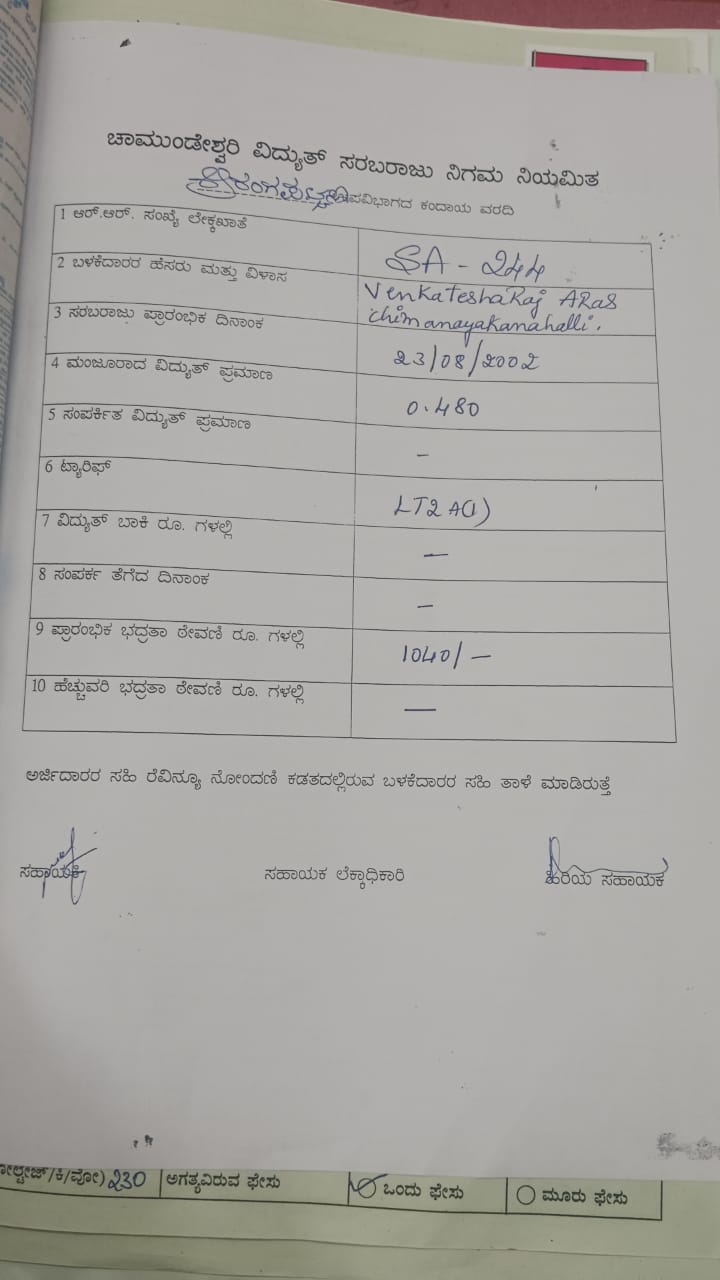 ಚಾಮುಂಡೇಶ್ವರಿ ವಿದ್ಯುತ್ ಸರಬರಾಜು ನಿಗಮ ನಿಯಮಿತ
ಪವಿಭಾಗದ ಕಂದಾಯ ವರದಿ
1 ಆರ್.ಆರ್. ಸಂಖ್ಯೆ ಲೇಕ್ಕಖಾತೆ
SA - 244
2 ಬಳಕೆದಾರರ ಹೆಸರು ಮತ್ತು ವಿಳಾಸ
VenkateshaRaj ARas
chimanayakanahalli.
3 ಸರಬರಾಜು ಪ್ರಾರಂಭಿಕ ದಿನಾಂಕ
23/08/2002
4 ಮಂಜೂರಾದ ವಿದ್ಯುತ್ ಪ್ರಮಾಣ
0.480
5 ಸಂಪರ್ಕಿತ ವಿದ್ಯುತ್ ಪ್ರಮಾಣ
-
6 ಟ್ಯಾರಿಫ್
LT2 A(1)
7 ವಿದ್ಯುತ್ ಬಾಕಿ ರೂ. ಗಳಲ್ಲಿ
-
8 ಸಂಪರ್ಕ ತೆಗೆದ ದಿನಾಂಕ
-
9 ಪ್ರಾರಂಭಿಕ ಭದ್ರತಾ ಠೇವಣಿ ರೂ. ಗಳಲ್ಲಿ
1040/-
10 ಹೆಚ್ಚುವರಿ ಭದ್ರತಾ ಠೇವಣಿ ರೂ. ಗಳಲ್ಲಿ
-
ಅರ್ಜಿದಾರರ ಸಹಿ ರೆವಿನ್ಯೂ ನೋಂದಣಿ ಕಡತದಲ್ಲಿರುವ ಬಳಕೆದಾರರ ಸಹಿ ತಾಳೆ ಮಾಡಿರುತ್ತೆ
ಸಹಾಯಕ ಸಹಾಯಕ ಲೆಕ್ಕಾಧಿಕಾರಿ ಹಿರಿಯ ಸಹಾಯಕ
230 ಅಗತ್ಯವಿರುವ ಫೇಸು ಒಂದು ಫೇಸು ಮೂರು ಫೇಸು